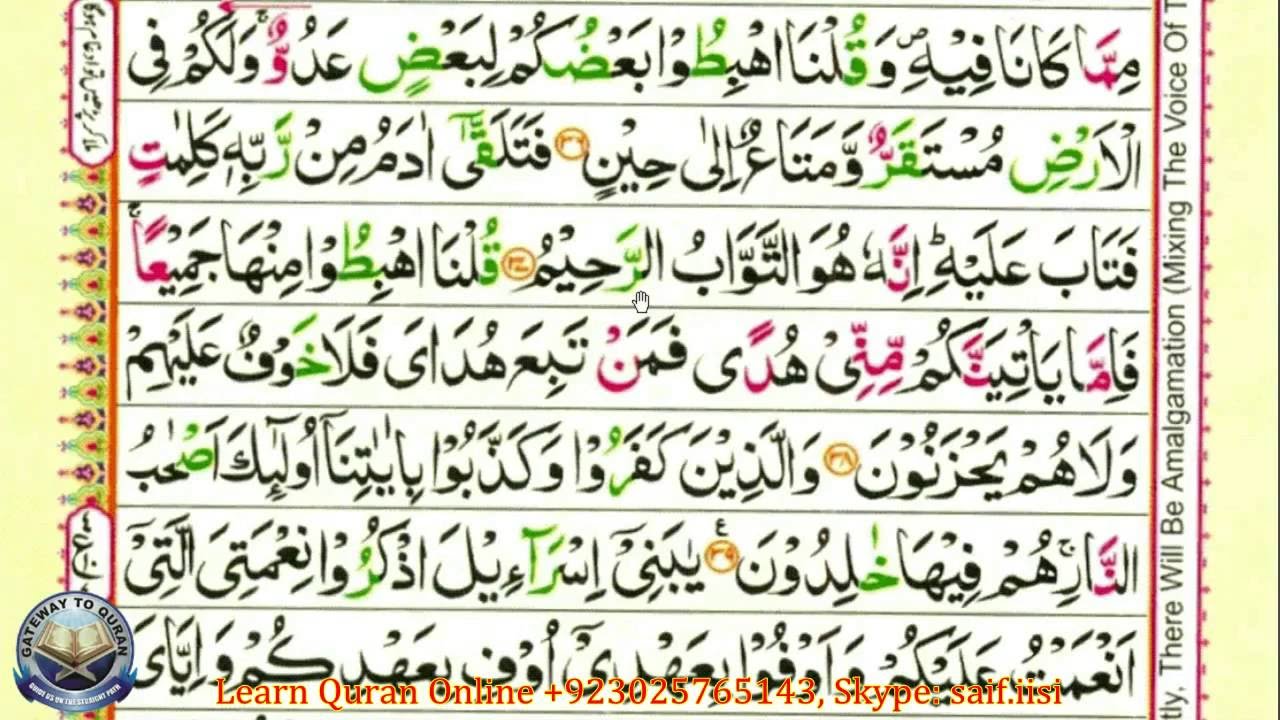 مِمَّا كَانَا فِيْهِ ۪ وَ قُلْنَا اهْبِطُوْا بَعْضُكُمْ لِبَعْضٍ عَدُوٌّ ۚ وَلَكُمْ فِی
الْاَرْضِ مُسْتَقَرٌّ وَّ مَتَاعٌ اِلٰی حِیْنٍ ﴿۳۶﴾ فَتَلَقّٰۤی اٰدَمُ مِنْ رَّبِّهٖ كَلِمٰتٍ
فَتَابَ عَلَیْهِ ؕ اِنَّهٗ هُوَ التَّوَّابُ الرَّحِیْمُ ﴿۳۷﴾ قُلْنَا اهْبِطُوْا مِنْهَا جَمِیْعًا ۚ
فَاِمَّا یَاْتِیَنَّكُمْ مِّنِّیْ هُدًی فَمَنْ تَبِعَ هُدَایَ فَلَا خَوْفٌ عَلَیْهِمْ
وَلَا هُمْ یَحْزَنُوْنَ ﴿۳۸﴾ وَالَّذِیْنَ كَفَرُوْا وَكَذَّبُوْا بِاٰیٰتِنَاۤ اُولٰٓىِٕكَ اَصْحٰبُ
النَّارِ ۚ هُمْ فِیْهَا خٰلِدُوْنَ ﴿۳۹﴾ ع یٰبَنِیْۤ اِسْرَآءِیْلَ اذْكُرُوْا نِعْمَتِیَ الَّتِیْۤ
اَنْعَمْتُ عَلَیْكُمْ وَ اَوْفُوْا بِعَهْدِیْۤ اُوْفِ بِعَهْدِكُمْ وَ اِیَّایَ
tly, There Will Be Amalgamation (Mixing The Voice Of T
GATEWAY TO QURAN
GUIDE US ON THE STRAIGHT PATH
Learn Quran Online +923025765143, Skype: saif.iisi